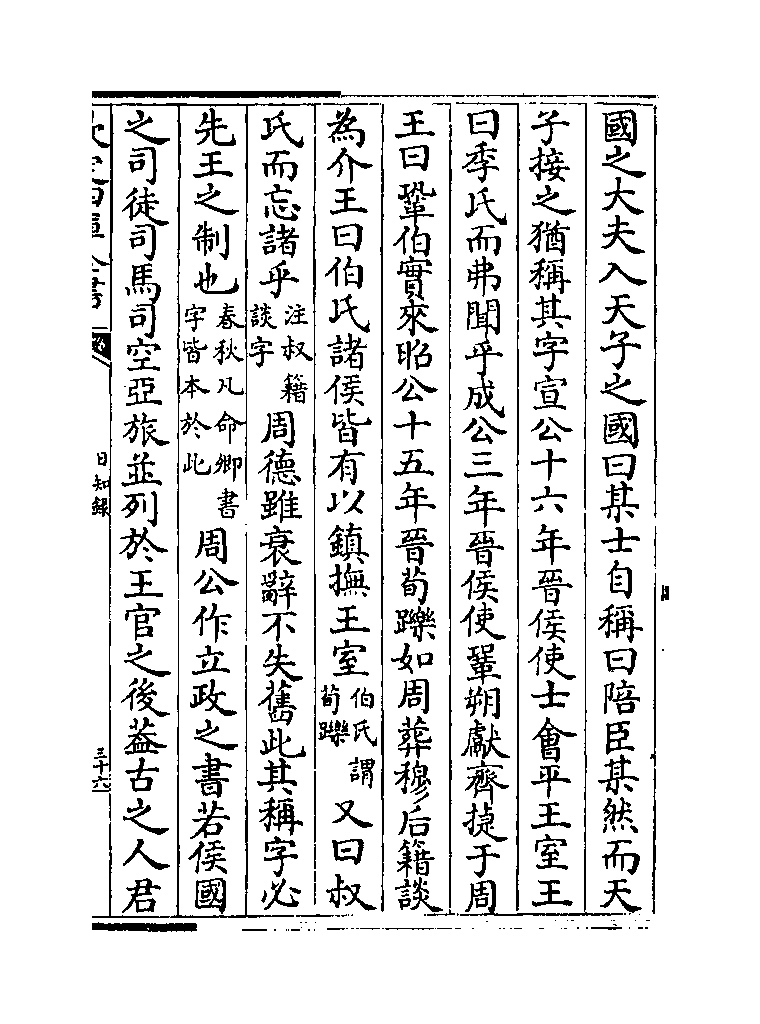 國之大夫入天子之國曰某士自稱曰陪臣某然而天
子接之猶稱其字宣公十六年晉侯使士會平王室王
曰季氏而弗聞乎成公三年晉侯使鞏朔獻齊捷于周
王曰鞏伯實來昭公十五年晉荀躒如周葬穆后籍談
為介王曰伯氏諸侯皆有以鎮撫王室伯氏謂荀躒又曰叔
氏而忘諸乎注叔籍談字周德雖衰辭不失舊此其稱字必
先王之制也春秋凡命卿書字皆本於此周公作立政之書若侯國
之司徒司馬司空亞旅並列於王官之後葢古之人君
欽定四庫全書
日知錄
三十六